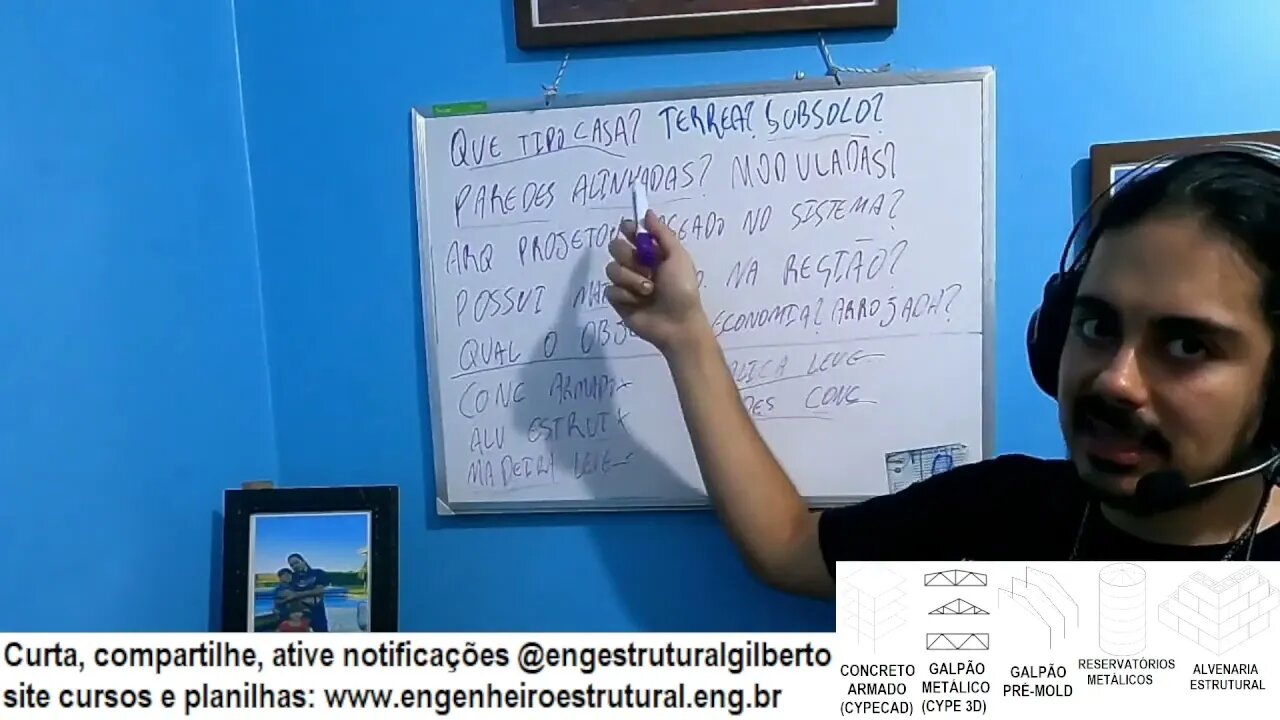 QUE TIPO CASA? TERREA? SUBSOLO?
PAREDES ALINHADAS? MODULADAS?
ARQ PROJETOU NO SISTEMA?
POSSUI NA REGIÃO?
QUAL O ECONOMIA? ARROJADA?
CONC ARMADO LEVE
ALV ESTRUT CONC
MADEIRA LEVE
Curta, compartilhe, ative notificações @engestruturalgilberto
site cursos e planilhas: www.engenheiroestrutural.eng.br
CONCRETO
ARMADO
(CYPECAD)
GALPÃO
METÁLICO
(CYPE 3D)
GALPÃO
PRÉ-MOLD
RESERVATÓRIOS
METÁLICOS
ALVENARIA
ESTRUTURAL